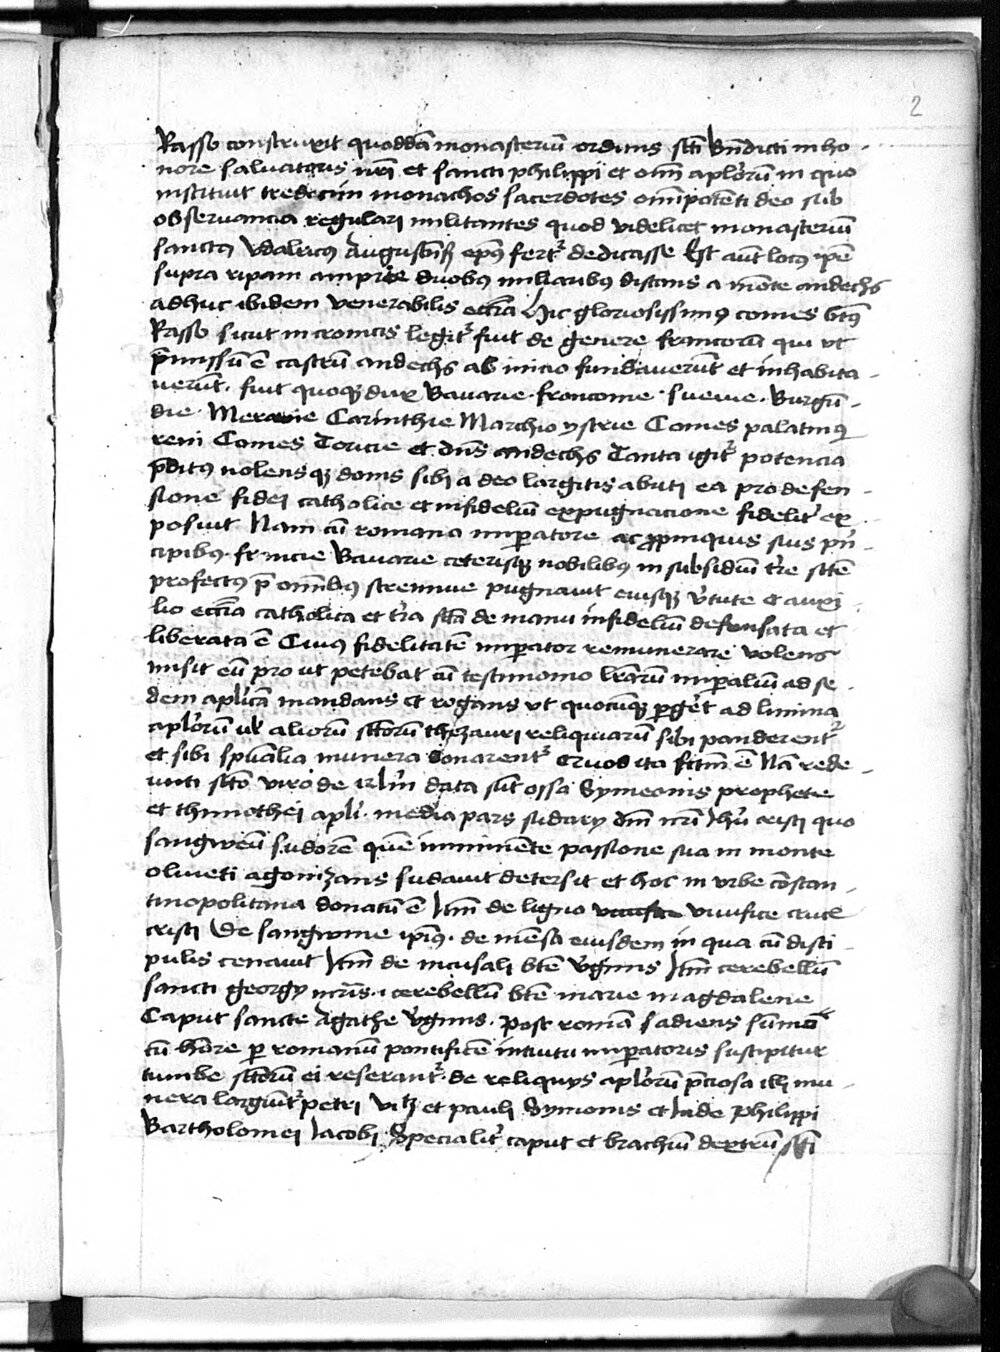 2
Rasso construxit quoddã monasteriũ ordinis sct̃i bñdicti in ho-
nore salvatoris nr̃i et sancti philippi et om̃ apl'orũ in quo
instituit tredecim monachos sacerdotes om̃ipotenti deo sub
observancia regulari militantes quod videlicet monasteriũ
sanctus vdalricus Augusteñ ep̃us fertr dedicasse Est aut̃ locus ip̃e
supra ripam ampris duobus miliaribus distans a monte andechs
adhuc ibidem venerabilis ecc̃ia Hic gloriosissimus comes bt̃us
Rasso sicut in cronicis legitr fuit de genere francorũ qui ut
p̃missũ ẽ castrũ andechs ab inicio fundaverũt et inhabita-
verũt. fuit quoque dux Bavarie. franconie. Suevie. Burgũ-
die. Meranie Carinthie Marchio ystrie Comes palatinus
reni Comes Tervicie et dñs andechs Tanta igitr potencia
p̃ditus nolensque donis sibi a deo largitis abuti ea pro defen-
sione fidei catholice et infideliũ expugnacione fidelit' ex-
posuit Nam cũ romano imp̃atore ac p̃pinquis suis p̃n-
cipibus francie Bavarie ceterisque nobilibus in subsidiũ t're sct̃e
profectus p̃ om̃ibus strennue pugnavit eiusque v'tute et auxi-
lio ecc̃ia catholica et t'ra sct̃a de manu infideliũ defensata et
liberata ẽ Cuius fidelitatẽ imp̃ator remunerare volens
misit eũ pro ut petebat cũ testimonio lr̃arũ imp̃aliũ ad se-
dem apl'icã mandans et rogans ut quocũque p̃g'et ad limina
apl'orũ vel aliorũ sct̃orũ thezauri reliquiarũ sibi panderentr
et sibi sp̃cialia munera donarentr Quod ita fc̃m ẽ Nã rede-
unti sct̃o viro de irl'm data sũt ossa Symeonis prophete
et thimothei apl'i. media pars sudary dñi nr̃i Jh'u cristi quo
sangwineũ sudorẽ quẽ imminente passione sua in monte
oliveti agonizans sudavit detersit et hoc in urbe cõstan-
tinopolitana donatũ ẽ Itm̃ de ligno vivifice crucis
cristi De sangwine ip̃ius. de mẽsa eiusdem in qua cũ disci-
pulis cenavit Itm̃ de incusali bt̃e v'ginis Itm̃ cerebellũ
sancti georgy mr̃is. cerebellũ bt̃e marie magdalene
Caput sancte Agathe v'ginis. Post romã sadiens sũmo
cũ hõre p̃ romanũ pontificẽ intuitu imp̃atoris suscipitur
tumbe sct̃orũ ei reserantr. de reliquys apl'orũ p̃ciosa illi mu-
nera largiũtr petri vitz et pauli Symonis et Jude Philippi
Bartholomei Jacobi Specialit' caput et brachiũ dextrũ sct̃i